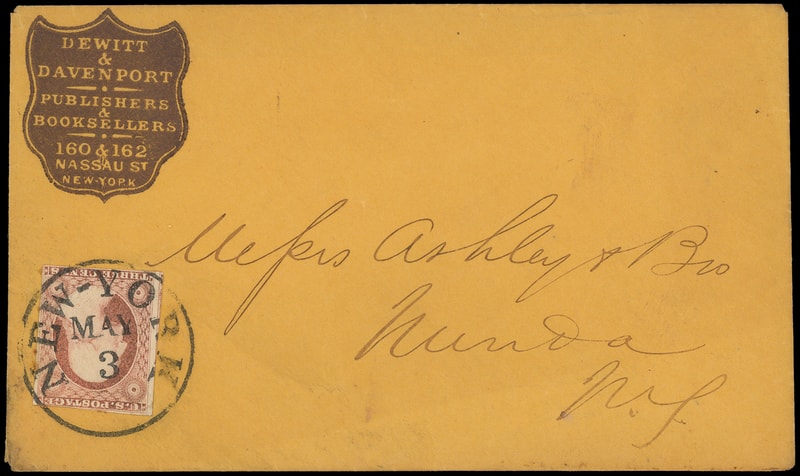 DEWITT
&
DAVENPORT
PUBLISHERS
&
BOOKSELLERS
160 & 162
NASSAU ST
NEW-YORK
Messrs Ashley & Bro
Nunda
N.Y.
NEW-YORK
MAY
3
U.S. POSTAGE
THREE CENTS